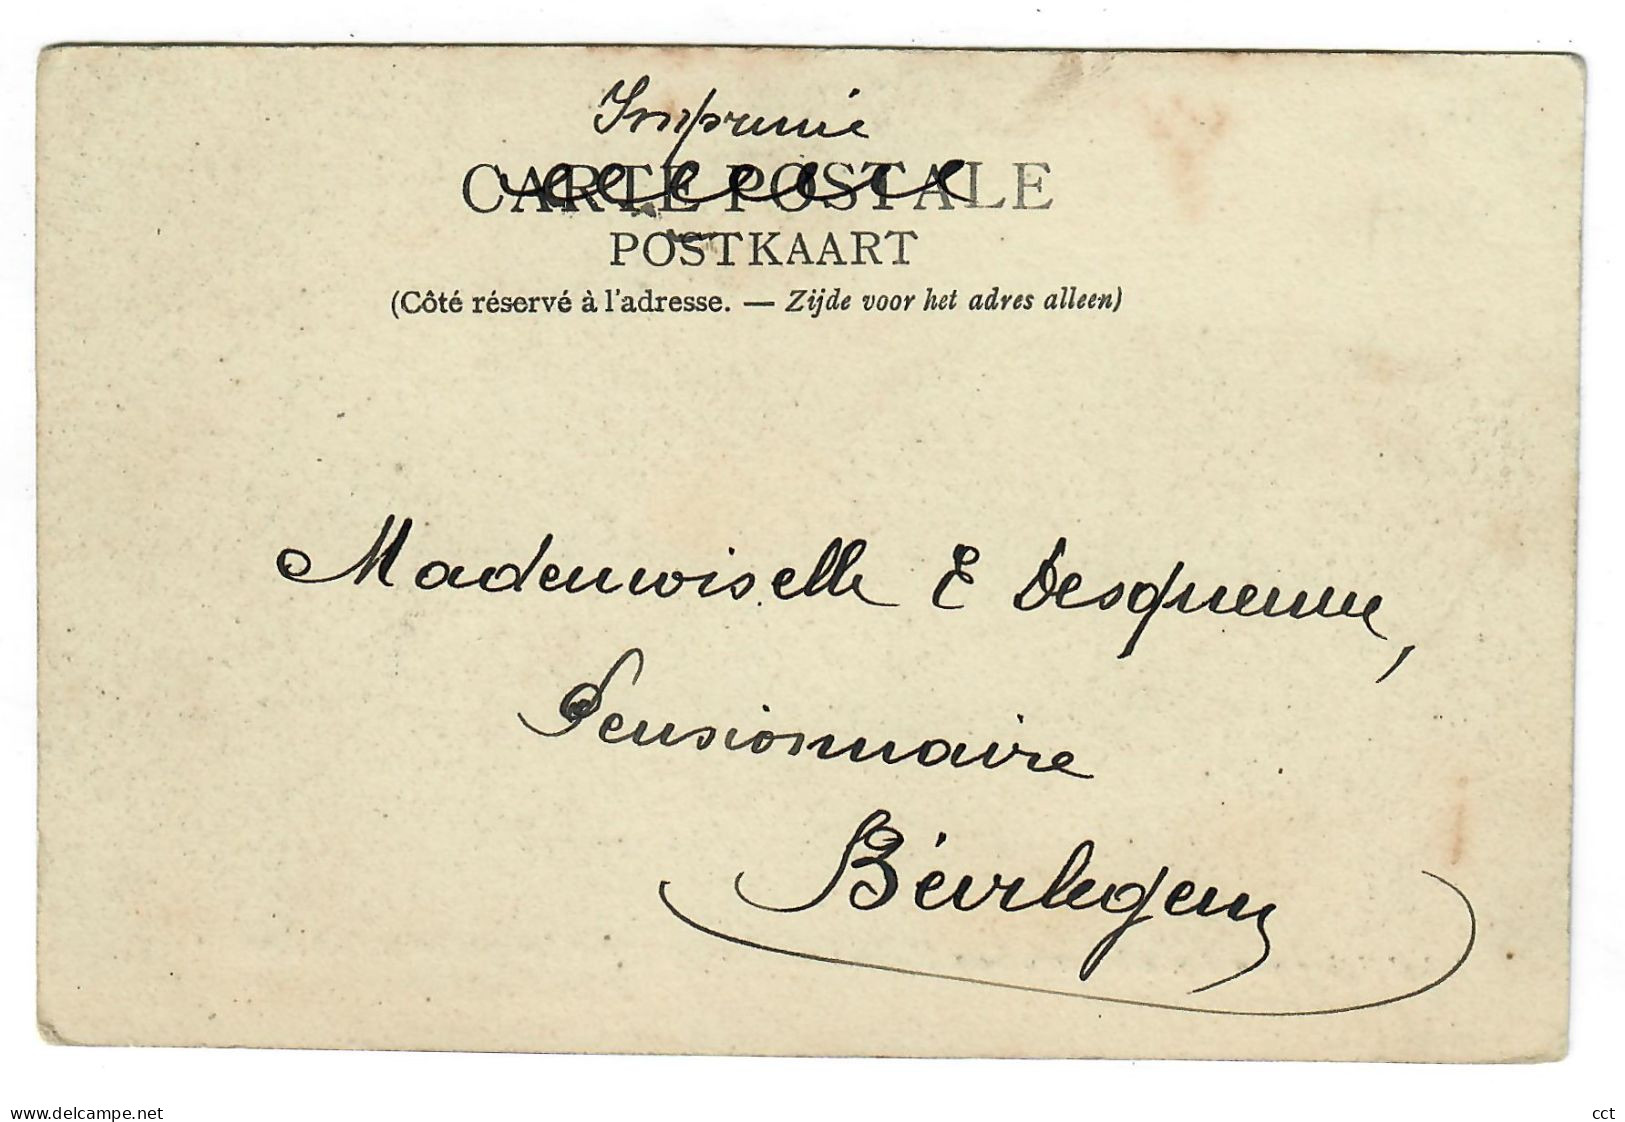 Imprimé
CARTE POSTALE
POSTKAART
(Côté réservé à l'adresse. — Zijde voor het adres alleen)
Mademoiselle E Desquenne,
Pensionnaire
Bévrlegem
www.delcampe.net
cct